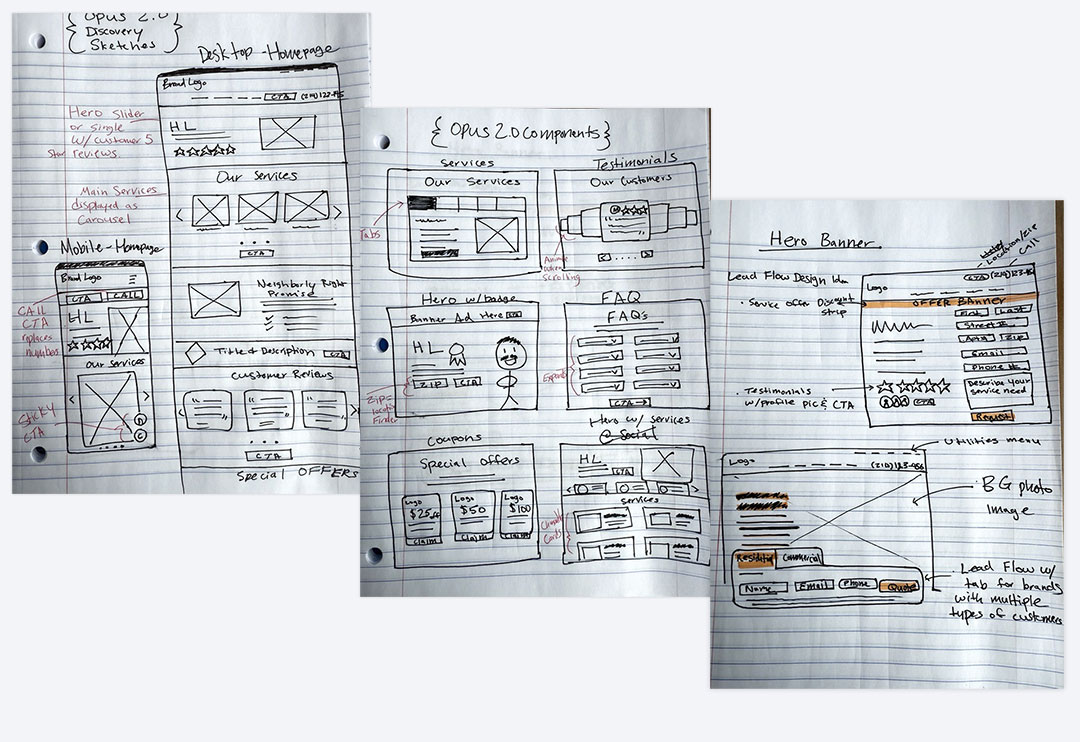 { Opus 2.0
Discovery
Sketches }
Desktop - Homepage
Brand Logo
CTA
HL
Hero Slider
or single
w/ customer 5
Star reviews.
Our Services
CTA
Main Services
displayed as
Carousel
Neighborly Right
Promise
Title & Description
CTA
Customer Reviews
CTA
Special OFFERS
Mobile - Homepage
Brand Logo
CTA
CALL
HL
CALL
CTA
replaces
number
Our Services
Sticky
CTA
C
{ Opus 2.0 Components }
Services
Our Services
Tabs
Testimonials
Our Customers
Scrolling
Hero w/ badge
Banner Ad Here
HL
ZIP
CTA
Zip =
location
Finder
FAQ
FAQ's
CTA →
Coupons
Special Offers
Logo
$25
Claim
Logo
$50
Claim
Logo
$100
Claim
Hero w/ services
& Social
HL
CTA
Services
Cards
Hero Banner
Lead Flow Design Idea
• Service Offer Discount
strip
Location/Zip
Call
Logo
OFFER BANNER
First
Last
Street #
Zip
Email
Phone #
Describe your
service need
Request
Testimonials
w/profile pic & CTA
CTA
Utilities menu
Logo
• BG photo
Image
Residential
Commercial
Name
Email
Phone
Quote
• Lead Flow w/
tab for brands
with multiple
types of customers